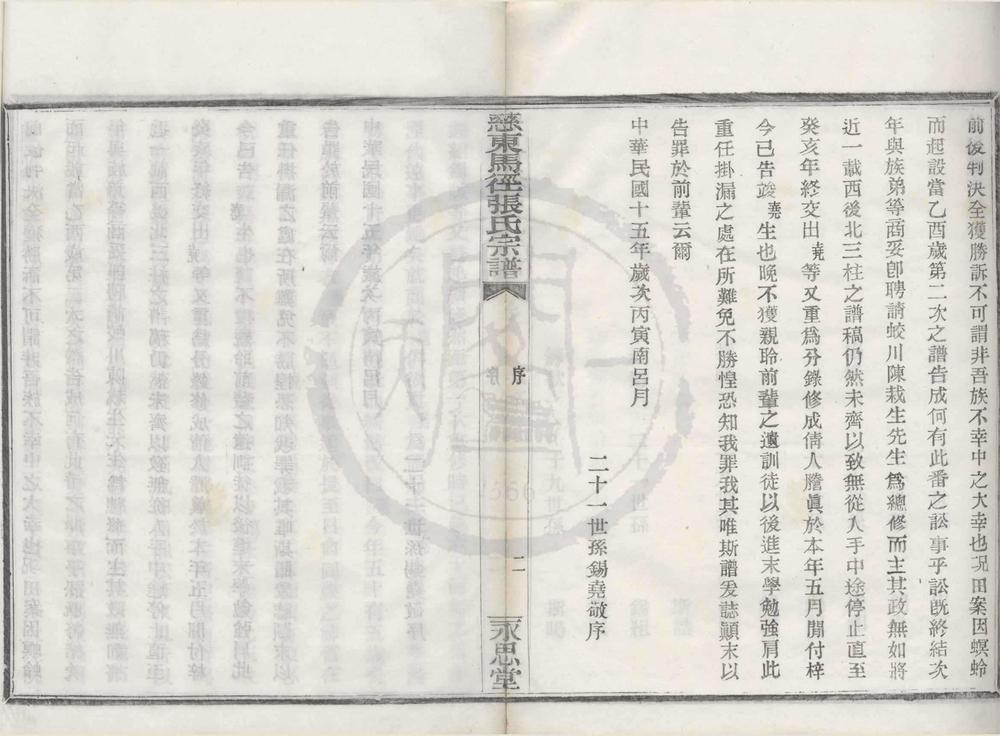 前後判決全獲勝訴不可謂非吾族不幸中之大幸也況田案因螟蛉
而起設當乙酉歲第二次之譜告成何有此番之訟事乎訟旣終結次
年與族弟等商妥卽聘請蛟川陳栽生先生爲總修而主其政無如將
近一載西後北三柱之譜稿仍然未齊以致無從入手中途停止直至
癸亥年終交出堯等又重爲分錄修成倩人謄眞於本年五月開付梓
今已告竣堯生也晚不獲親聆前輩之遺訓徒以後進末學勉強肩此
重任掛漏之處在所難免不勝惶恐知我罪我其唯斯譜爰誌顚末以
告罪於前輩云爾
中華民國十五年歲次丙寅南呂月
二十一世孫錫堯敬序
慈東馬徑張氏宗譜
序
二
永思堂